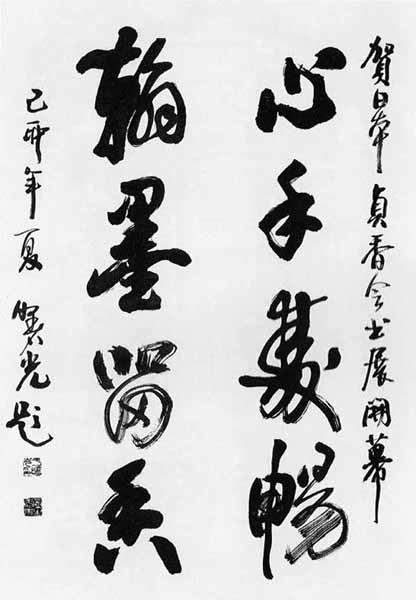 賀日本貞香会书展開幕
心手雙暢
翰墨留香
己卯年夏 光题